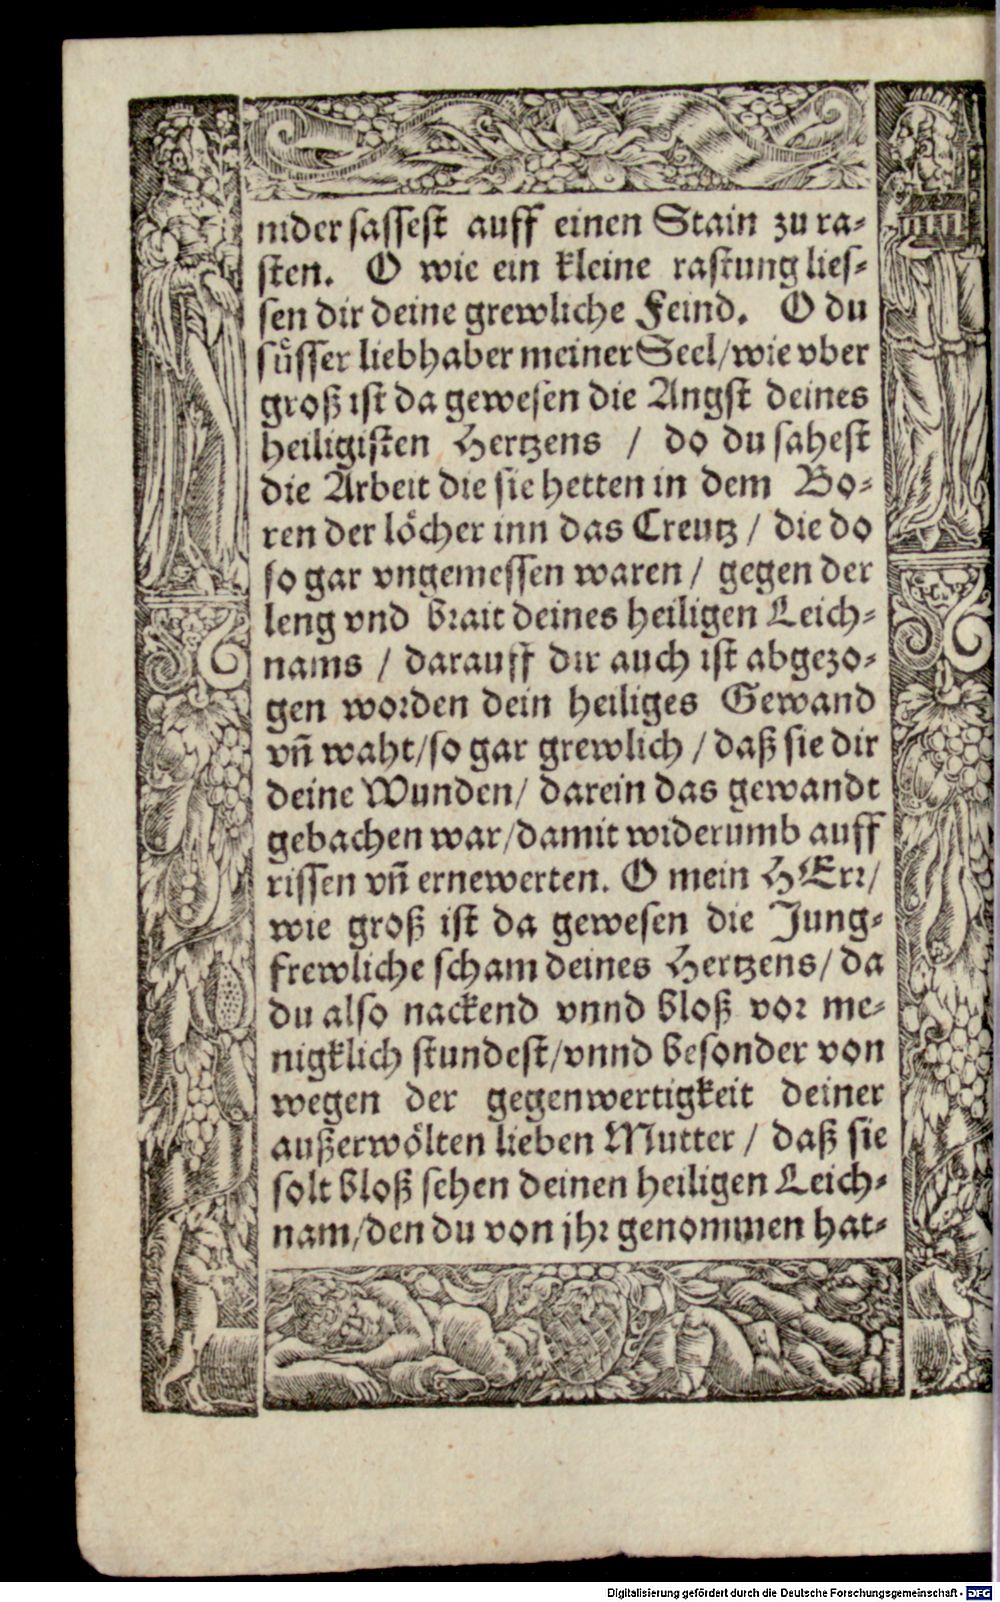 nider sassest auff einen Stain zu ra-
sten. O wie ein kleine rastung lies-
sen dir deine grewliche Feind. O du
suͤsser liebhaber meiner Seel/ wie vber
groß ist da gewesen die Angst deines
heiligisten Hertzens / do du sahest
die Arbeit die sie hetten in dem Bo-
ren der loͤcher inn das Creutz / die do
so gar vngemessen waren / gegen der
leng vnd brait deines heiligen Leich-
nams / darauff dir auch ist abgezo-
gen worden dein heiliges Gewand
vñ waht/ so gar grewlich / daß sie dir
deine Wunden/ darein das gewandt
gebachen war/ damit widerumb auff
rissen vñ ernewerten. O mein HErr/
wie groß ist da gewesen die Jung-
frewliche scham deines Hertzens/ da
du also nackend vnnd bloß vor me-
nigklich stundest/ vnnd besonder von
wegen der gegenwertigkeit deiner
außerwoͤlten lieben Mutter / daß sie
solt bloß sehen deinen heiligen Leich-
nam/ den du von jhr genommen hat-
Digitalisierung gefördert durch die Deutsche Forschungsgemeinschaft - DFG